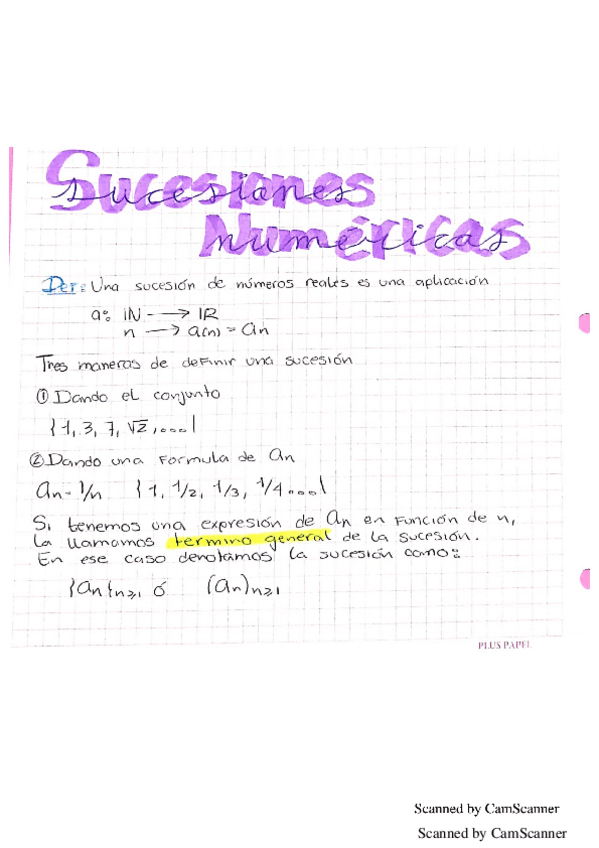 Sucesiones
Numéricas
Def: Una sucesión de números reales es una aplicación
a: ℕ → ℝ
n → a(n) = an
Tres maneras de definir una sucesión
① Dando el conjunto
{1, 3, 7, √2, ....}
② Dando una formula de an
an = 1/n {1, 1/2, 1/3, 1/4 ....}
Si tenemos una expresión de an en función de n,
la llamamos termino general de la sucesión.
En ese caso denotamos la sucesión como:
{an}n≥1 ó (an)n≥1
PLUS PAPEL
Scanned by CamScanner
Scanned by CamScanner